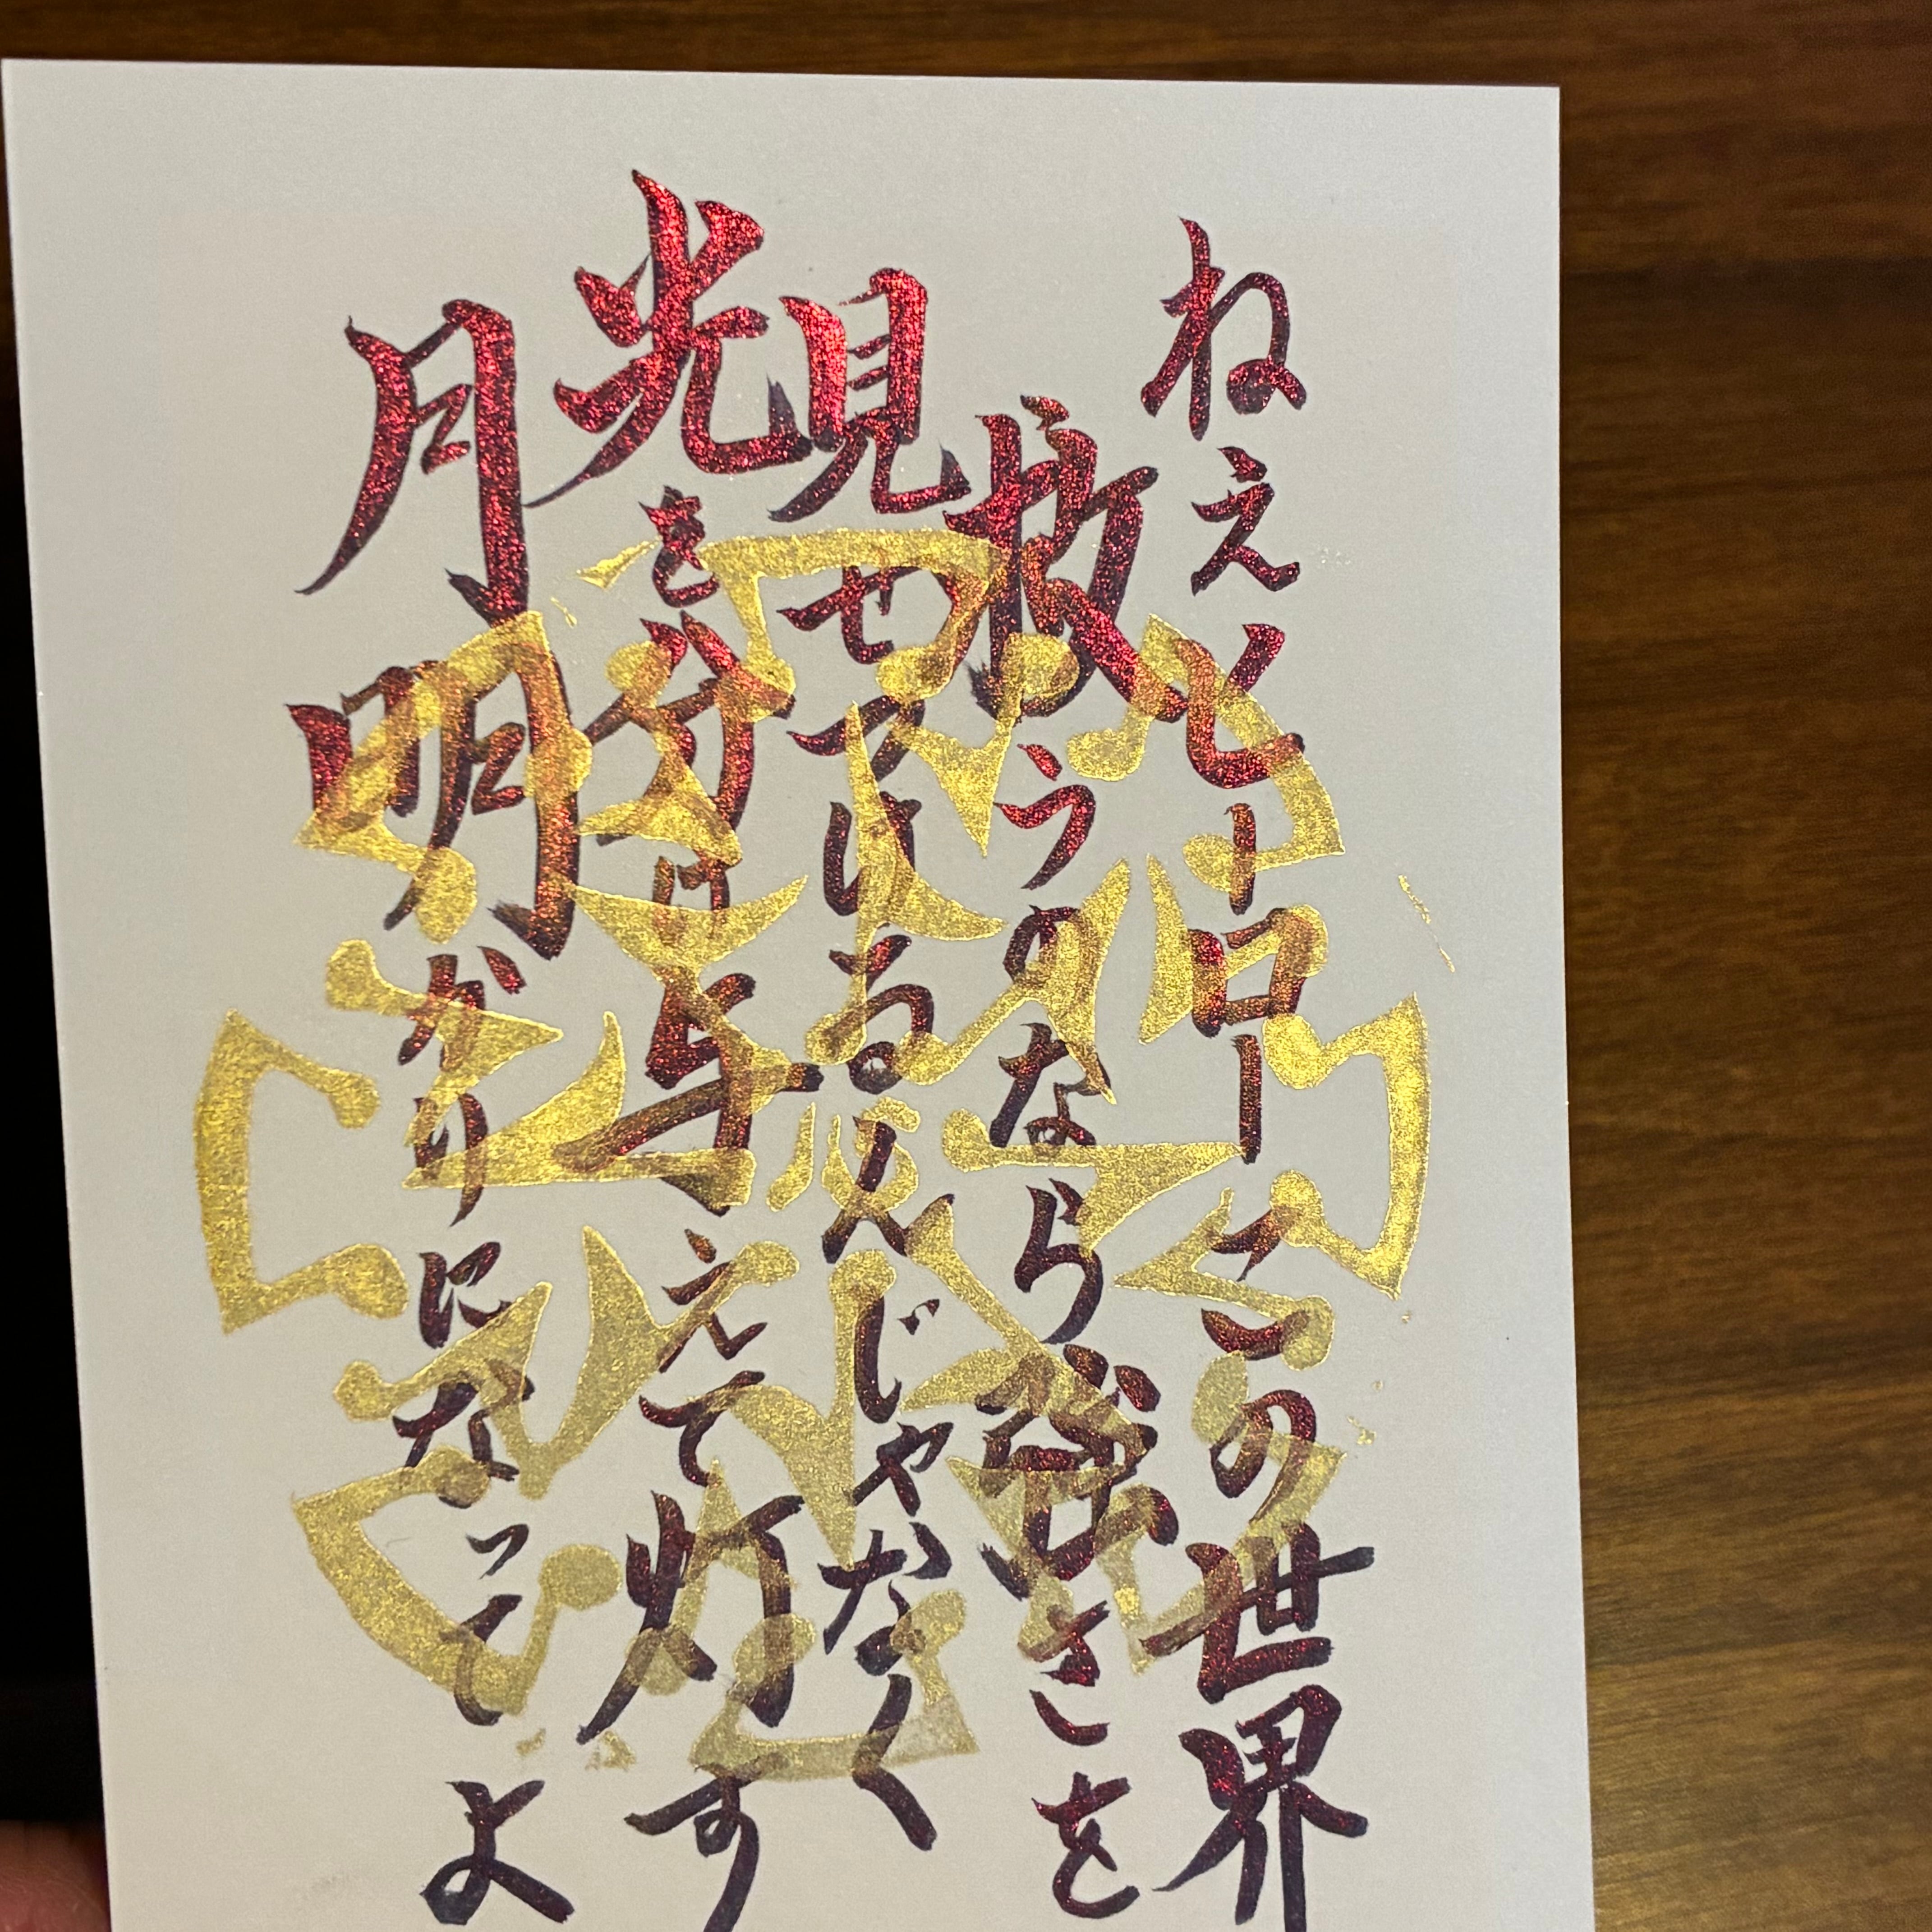 ねえヒーローこの世界
救うのなら強さを
見せつけるんじゃなく
光を分け与えて灯す
月明かりになってよ